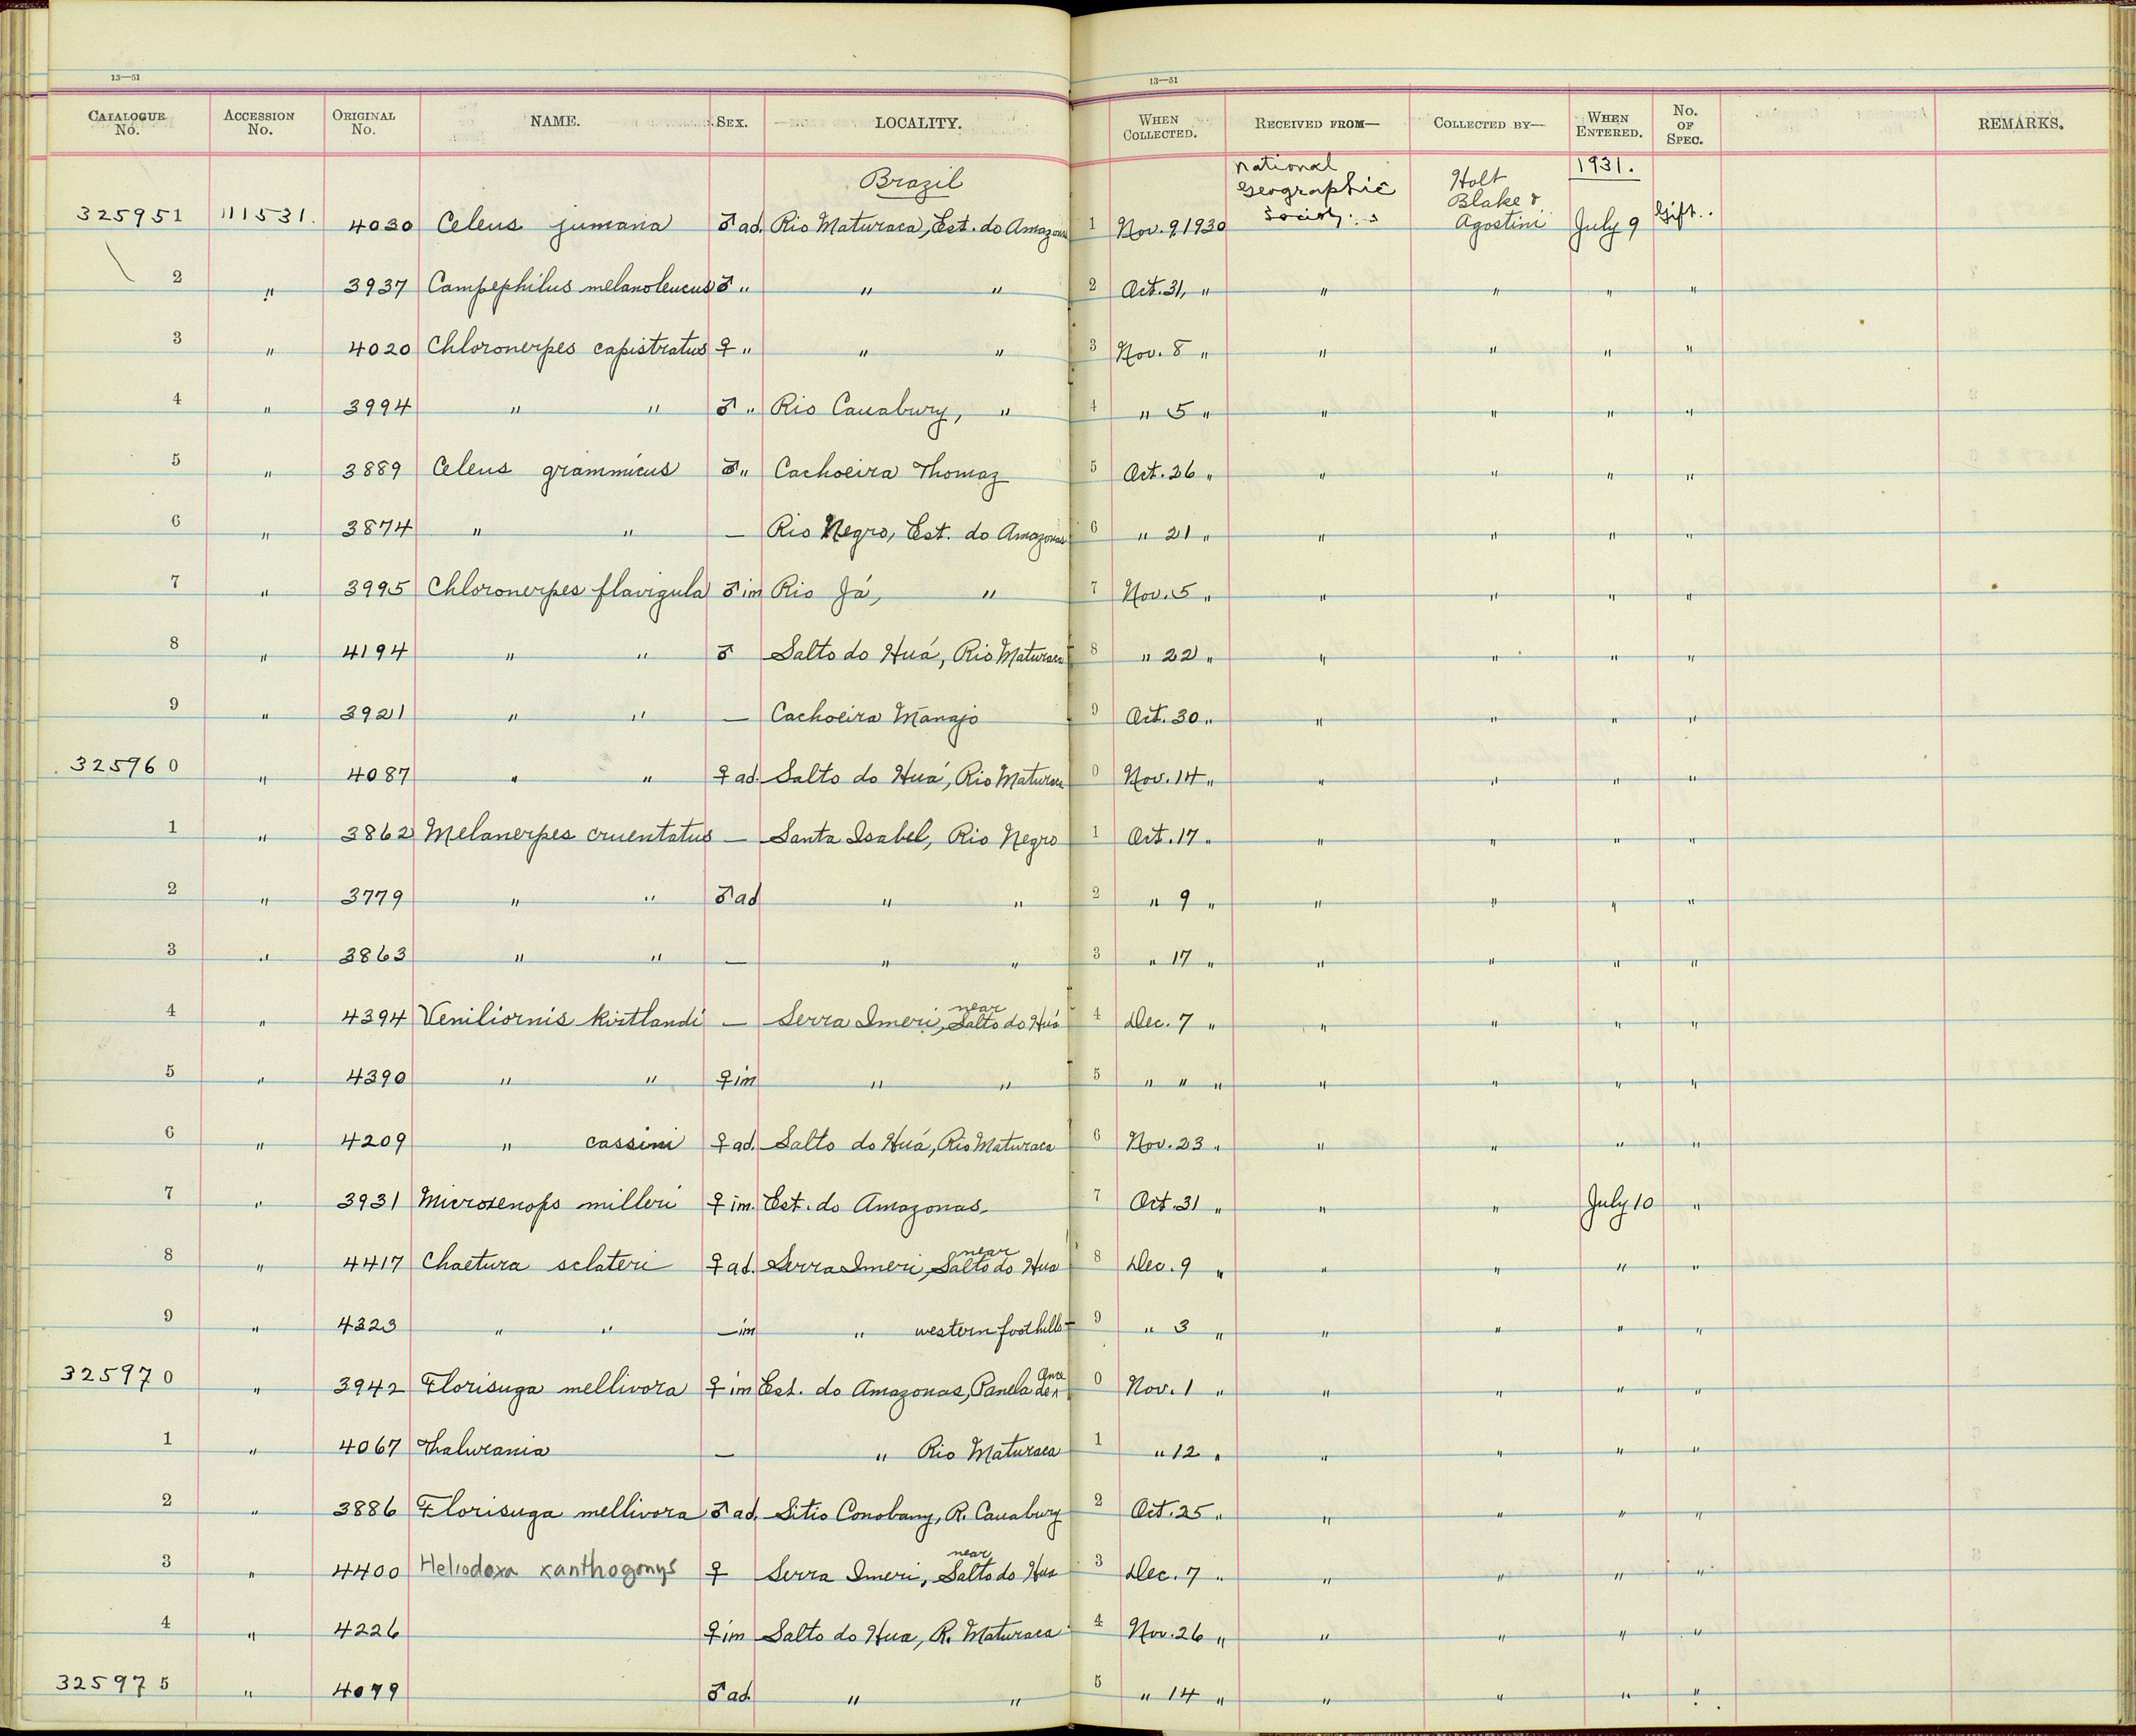 13—51 13—51
CATALOGUE No. ACCESSION No. ORIGINAL No. NAME. SEX. LOCALITY. WHEN COLLECTED. RECEIVED FROM— COLLECTED BY— WHEN ENTERED. No. OF SPEC. REMARKS.
Brazil National Geographic Society Holt Blake & Agostini 1931.
325951 111531. 4030 Celeus jumana ♂ ad. Rio Maturaca, Est. do Amazonas 1 Nov. 9, 1930 July 9 Gift.
2 " 3937 Campephilus melanoleucus ♂ " " " 2 Oct. 31, " " " " "
3 " 4020 Chloronerpes capistratus ♀ " " " 3 Nov. 8 " " " " "
4 " 3994 " " ♂ " Rio Cauabury, " 4 " 5 " " " " "
5 " 3889 Celeus grammicus ♂ " Cachoeira Thomaz 5 Oct. 26 " " " " "
6 " 3874 " " — Rio Negro, Est. do Amazonas 6 " 21 " " " " "
7 " 3995 Chloronerpes flavigula ♂ im Rio Já, " 7 Nov. 5 " " " " "
8 " 4194 " " ♂ Salto do Huá, Rio Maturaca 8 " 22 " " " " "
9 " 3921 " " — Cachoeira Manajo 9 Oct. 30 " " " " "
325960 " 4087 " " ♀ ad. Salto do Huá, Rio Maturaca 0 Nov. 14 " " " " "
1 " 3862 Melanerpes cruentatus — Santa Isabel, Rio Negro 1 Oct. 17 " " " " "
2 " 3779 " " ♂ ad " " 2 " 9 " " " " "
3 " 3863 " " — " " 3 " 17 " " " " "
4 " 4394 Veniliornis kirtlandi — Serra Imeri, near Salto do Huá 4 Dec. 7 " " " " "
5 " 4390 " " ♀ im " " 5 " " " " " " "
6 " 4209 " cassini ♀ ad. Salto do Huá, Rio Maturaca 6 Nov. 23 " " " " "
7 " 3931 Microxenops milleri ♀ im. Est. do Amazonas. 7 Oct. 31 " " " July 10 "
8 " 4417 Chaetura sclateri ♀ ad. Serra Imeri, near Salto do Hua 8 Dec. 9 " " " " "
9 " 4323 " " — im " western foothills 9 " 3 " " " " "
325970 " 3942 Florisuga mellivora ♀ im Est. do Amazonas, Panela de Onca 0 Nov. 1 " " " " "
1 " 4067 Thalurania — " Rio Maturaca 1 " 12 " " " " "
2 " 3886 Florisuga mellivora ♂ ad. Sitio Conobany, R. Cauabury 2 Oct. 25 " " " " "
3 " 4400 Heliodoxa xanthogonys ♀ Serra Imeri, near Salto do Hua 3 Dec. 7 " " " " "
4 " 4226 ♀ im Salto do Hua, R. Maturaca 4 Nov. 26 " " " " "
325975 " 4079 ♂ ad. " " 5 " 14 " " " " "